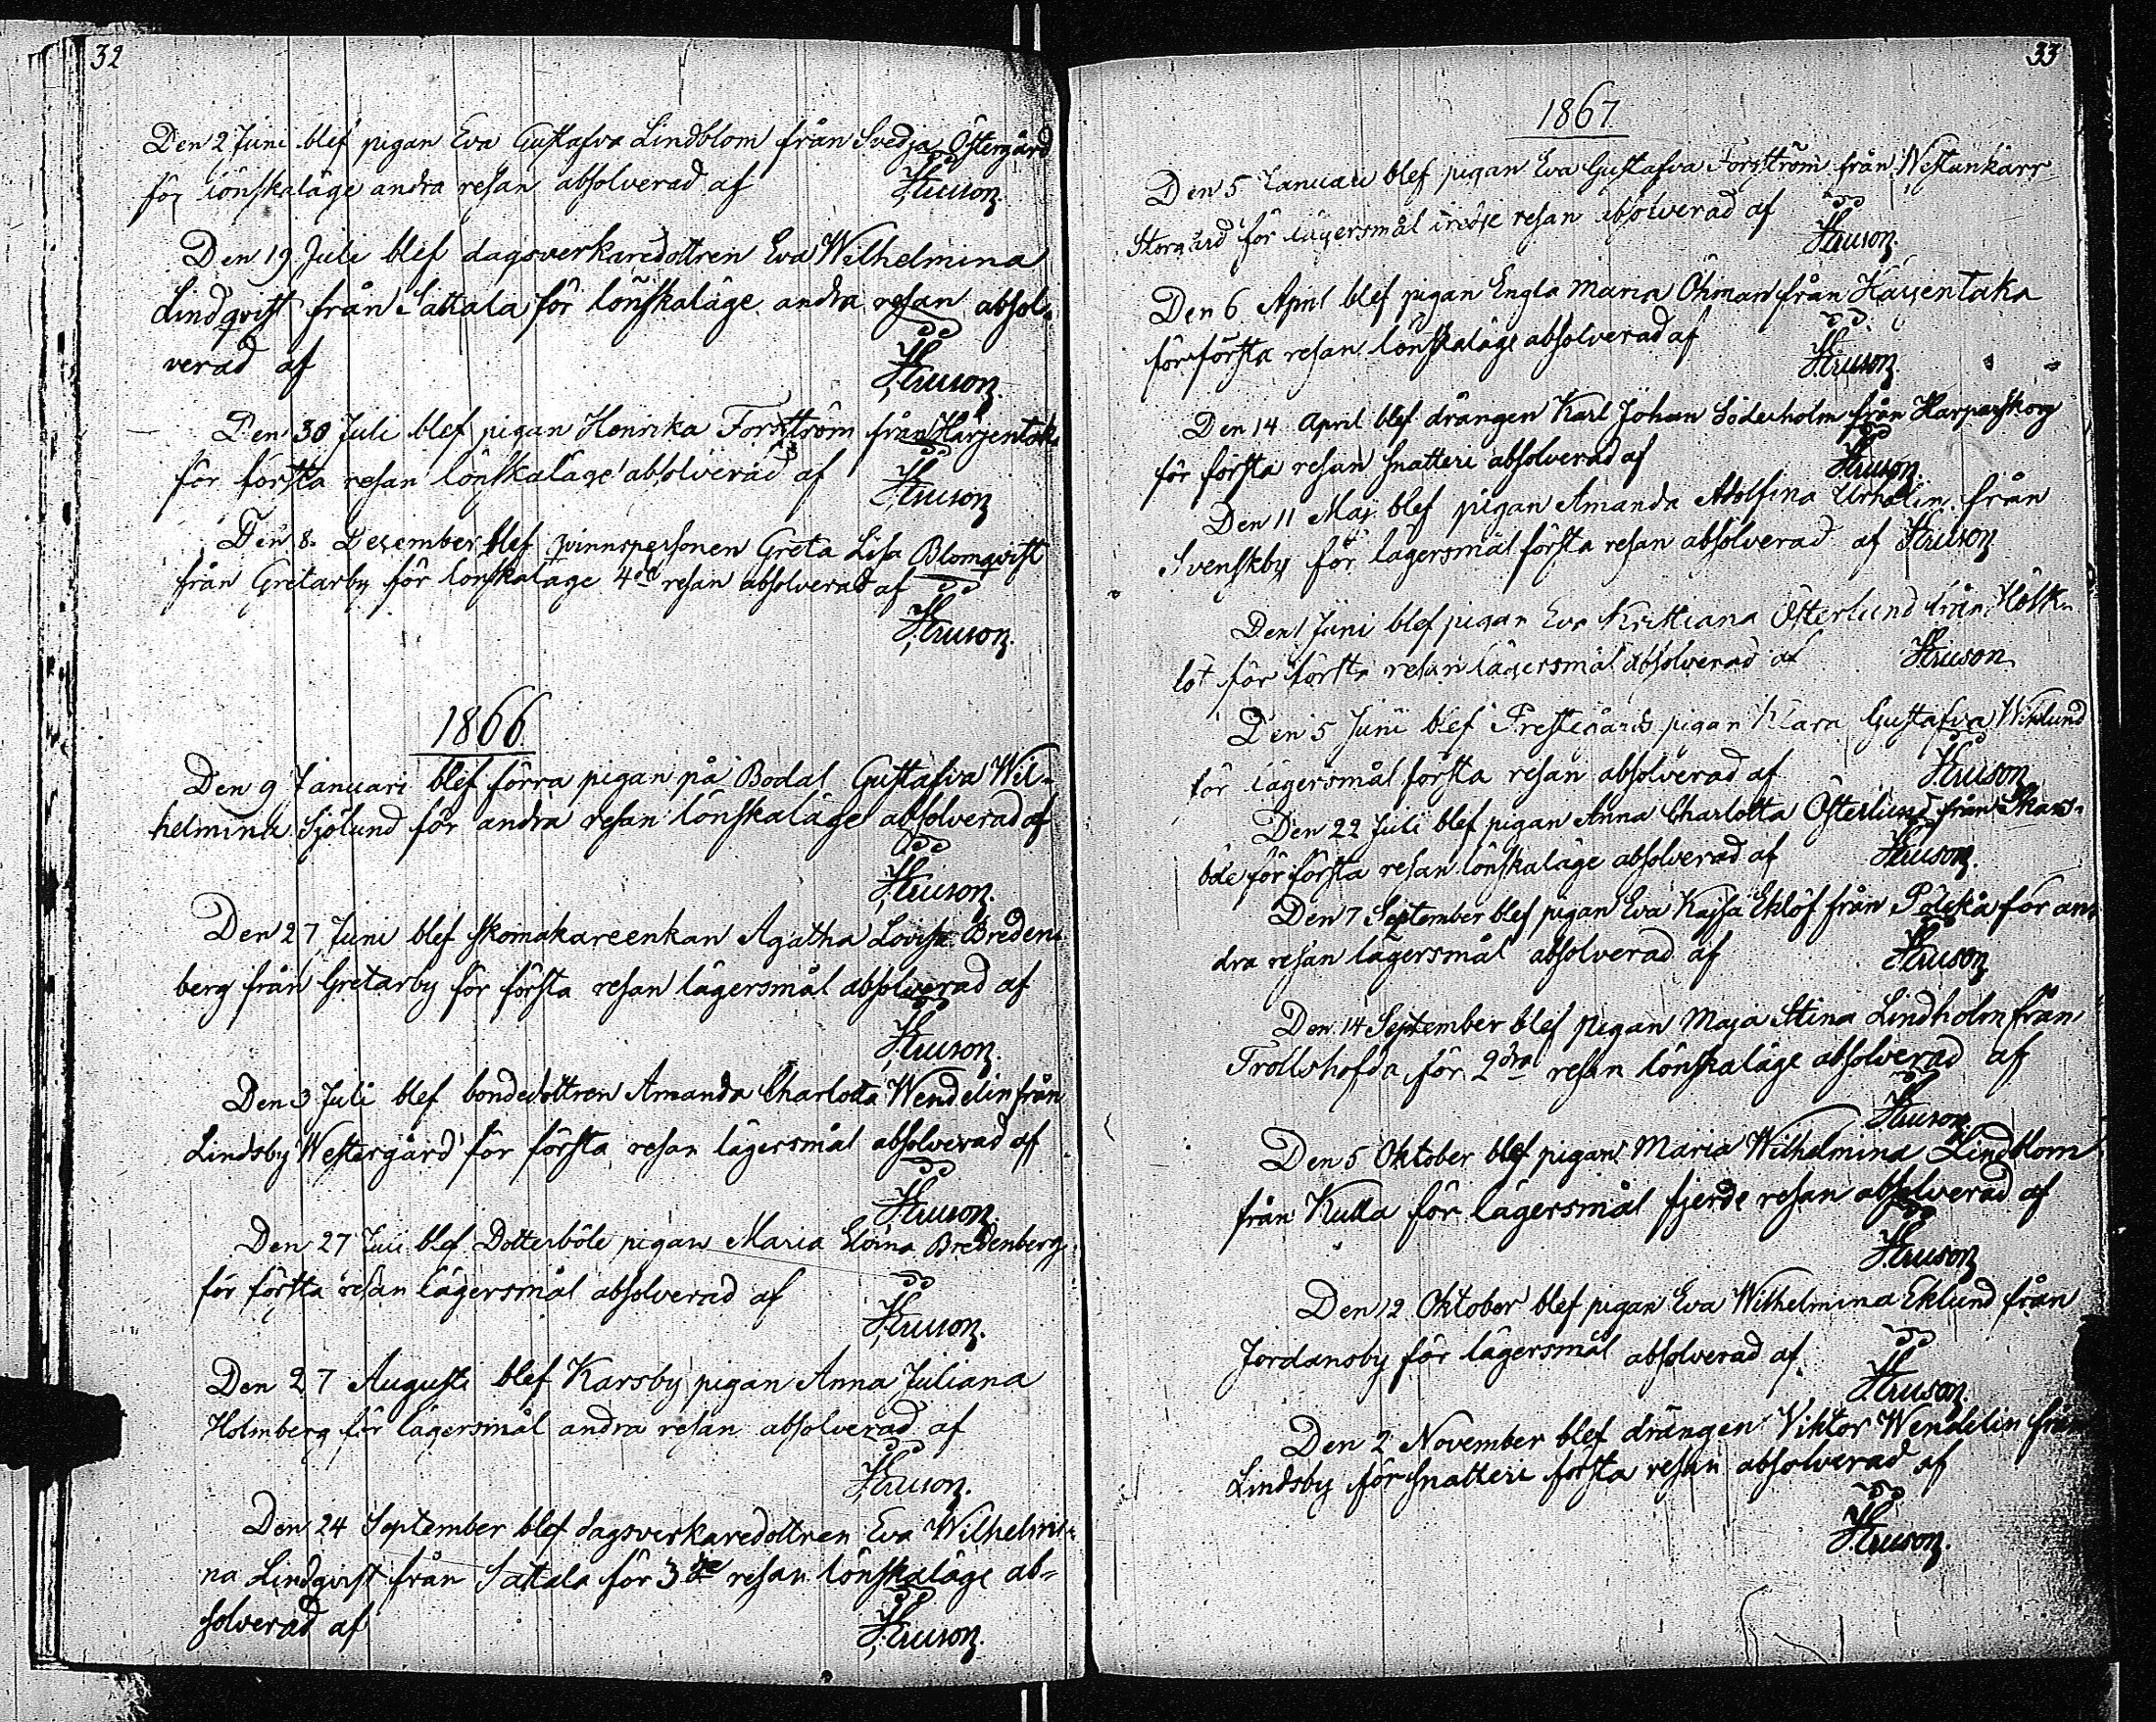 32
Den 2 Juni blef pigan Eva Gustafva Lindblom från Svedja Östergård
för lönskaläge andra resan absolverad af
Den 19 Juli blef dagsverkaredottren Eva Wilhelmina
Lindqvist från Sattala för lönskaläge andra resan absol-
verad af
Den 30 Juli blef pigan Henrika Forsström från Härjentaka
för första resan lönskaläge absolverad af
Den 8 December blef qvinnspersonen Greta Lisa Blomqvist
från Gretarby för lönskaläge 4de resan absolverad af
1866
Den 9 Januari blef förra pigan på Bodal Gustafva Wil-
helmina Sjölund för andra resan lönskaläge absolverad af
Den 27 Juni blef skomakareenkan Agatha Lovisa Breden-
berg från Gretarby för första resan lägersmål absolverad af
Den 3 Juli blef bondedottren Amanda Charlotta Wendelin från
Lindsby Westergård för första resan lägersmål absolverad af
Den 27 Juli blef Dotterböle pigan Maria Elvina Bredenberg
för första resan lägersmål absolverad af
Den 27 Augusti blef Karsby pigan Anna Juliana
Holmberg för lägersmål andra resan absolverad af
Den 24 September blef dagsverkaredottren Eva Wilhelmi-
na Lindqvist från Sattala för 3de resan lönskaläge ab-
solverad af
33
1867
Den 5 Januari blef pigan Eva Gustafva Forsström från Westankärr
Storgård för lägersmål tredje resan absolverad af
Den 6 April blef pigan Engla Maria Öhman från Härjentaka
för första resan lönskaläge absolverad af
Den 14 April blef drängen Karl Johan Söderholm från Harparskog
för första resan snatteri absolverad af
Den 11 Maj blef pigan Amanda Adolfina från
Svenskby för lägersmål första resan absolverad af
Den 1 Juni blef pigan Eva Kristiana Österlund från
för första resan lägersmål absolverad af
Den 5 Juni blef Prestegårds pigan Klara Gustafva Wiklund
för lägersmål första resan absolverad af
Den 22 Juli blef pigan Anna Charlotta Österlund från
för första resan lönskaläge absolverad af
Den 7 September blef pigan Eva Kajsa Eklöf från för an-
dra resan lägersmål absolverad af
Den 14 September blef pigan Maja Stina Lindholm från
Trollshofda för 2dra resan lönskaläge absolverad af
Den 5 Oktober blef pigan Maria Wilhelmina Lindblom
från Kulla för lägersmål fjerde resan absolverad af
Den 12 Oktober blef pigan Eva Wilhelmina Eklund från
Jordansby för lägersmål absolverad af
Den 2 November blef drängen Viktor Wendelin från
Lindsby för snatteri första resan absolverad af